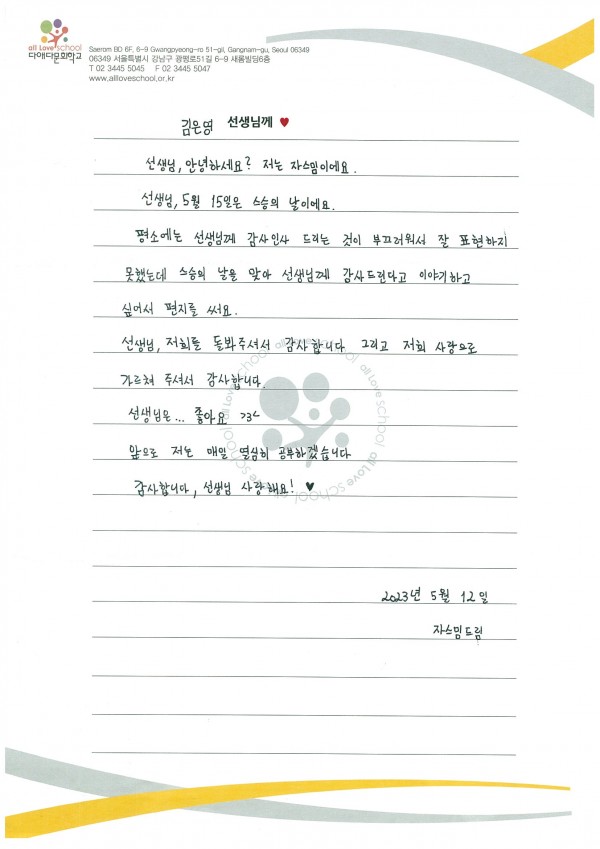 all Love school
다애다문화학교
Saerom BD 6F, 6-9 Gwangpyeong-ro 51-gil, Gangnam-gu, Seoul 06349
06349 서울특별시 강남구 광평로51길 6-9 새롬빌딩6층
T 02 3445 5045 F 02 3445 5047
www.allloveschool.or.kr
김은영 선생님께 ♥
선생님, 안녕하세요? 저는 자스밈이에요.
선생님, 5월 15일은 스승의 날이에요.
평소에는 선생님께 감사인사 드리는 것이 부끄러워서 잘 표현하지
못했는데 스승의 날을 맞아 선생님께 감사드린다고 이야기하고
싶어서 편지를 써요.
선생님, 저희를 돌봐주셔서 감사합니다 그리고 저희 사랑으로
가르쳐 주셔서 감사합니다.
선생님은... 좋아요
앞으로 저는 매일 열심히 공부하겠습니다
감사합니다, 선생님 사랑해요! ♥
all Love school all Love school all Love school all Love school
2023년 5월 12일
자스밈드림